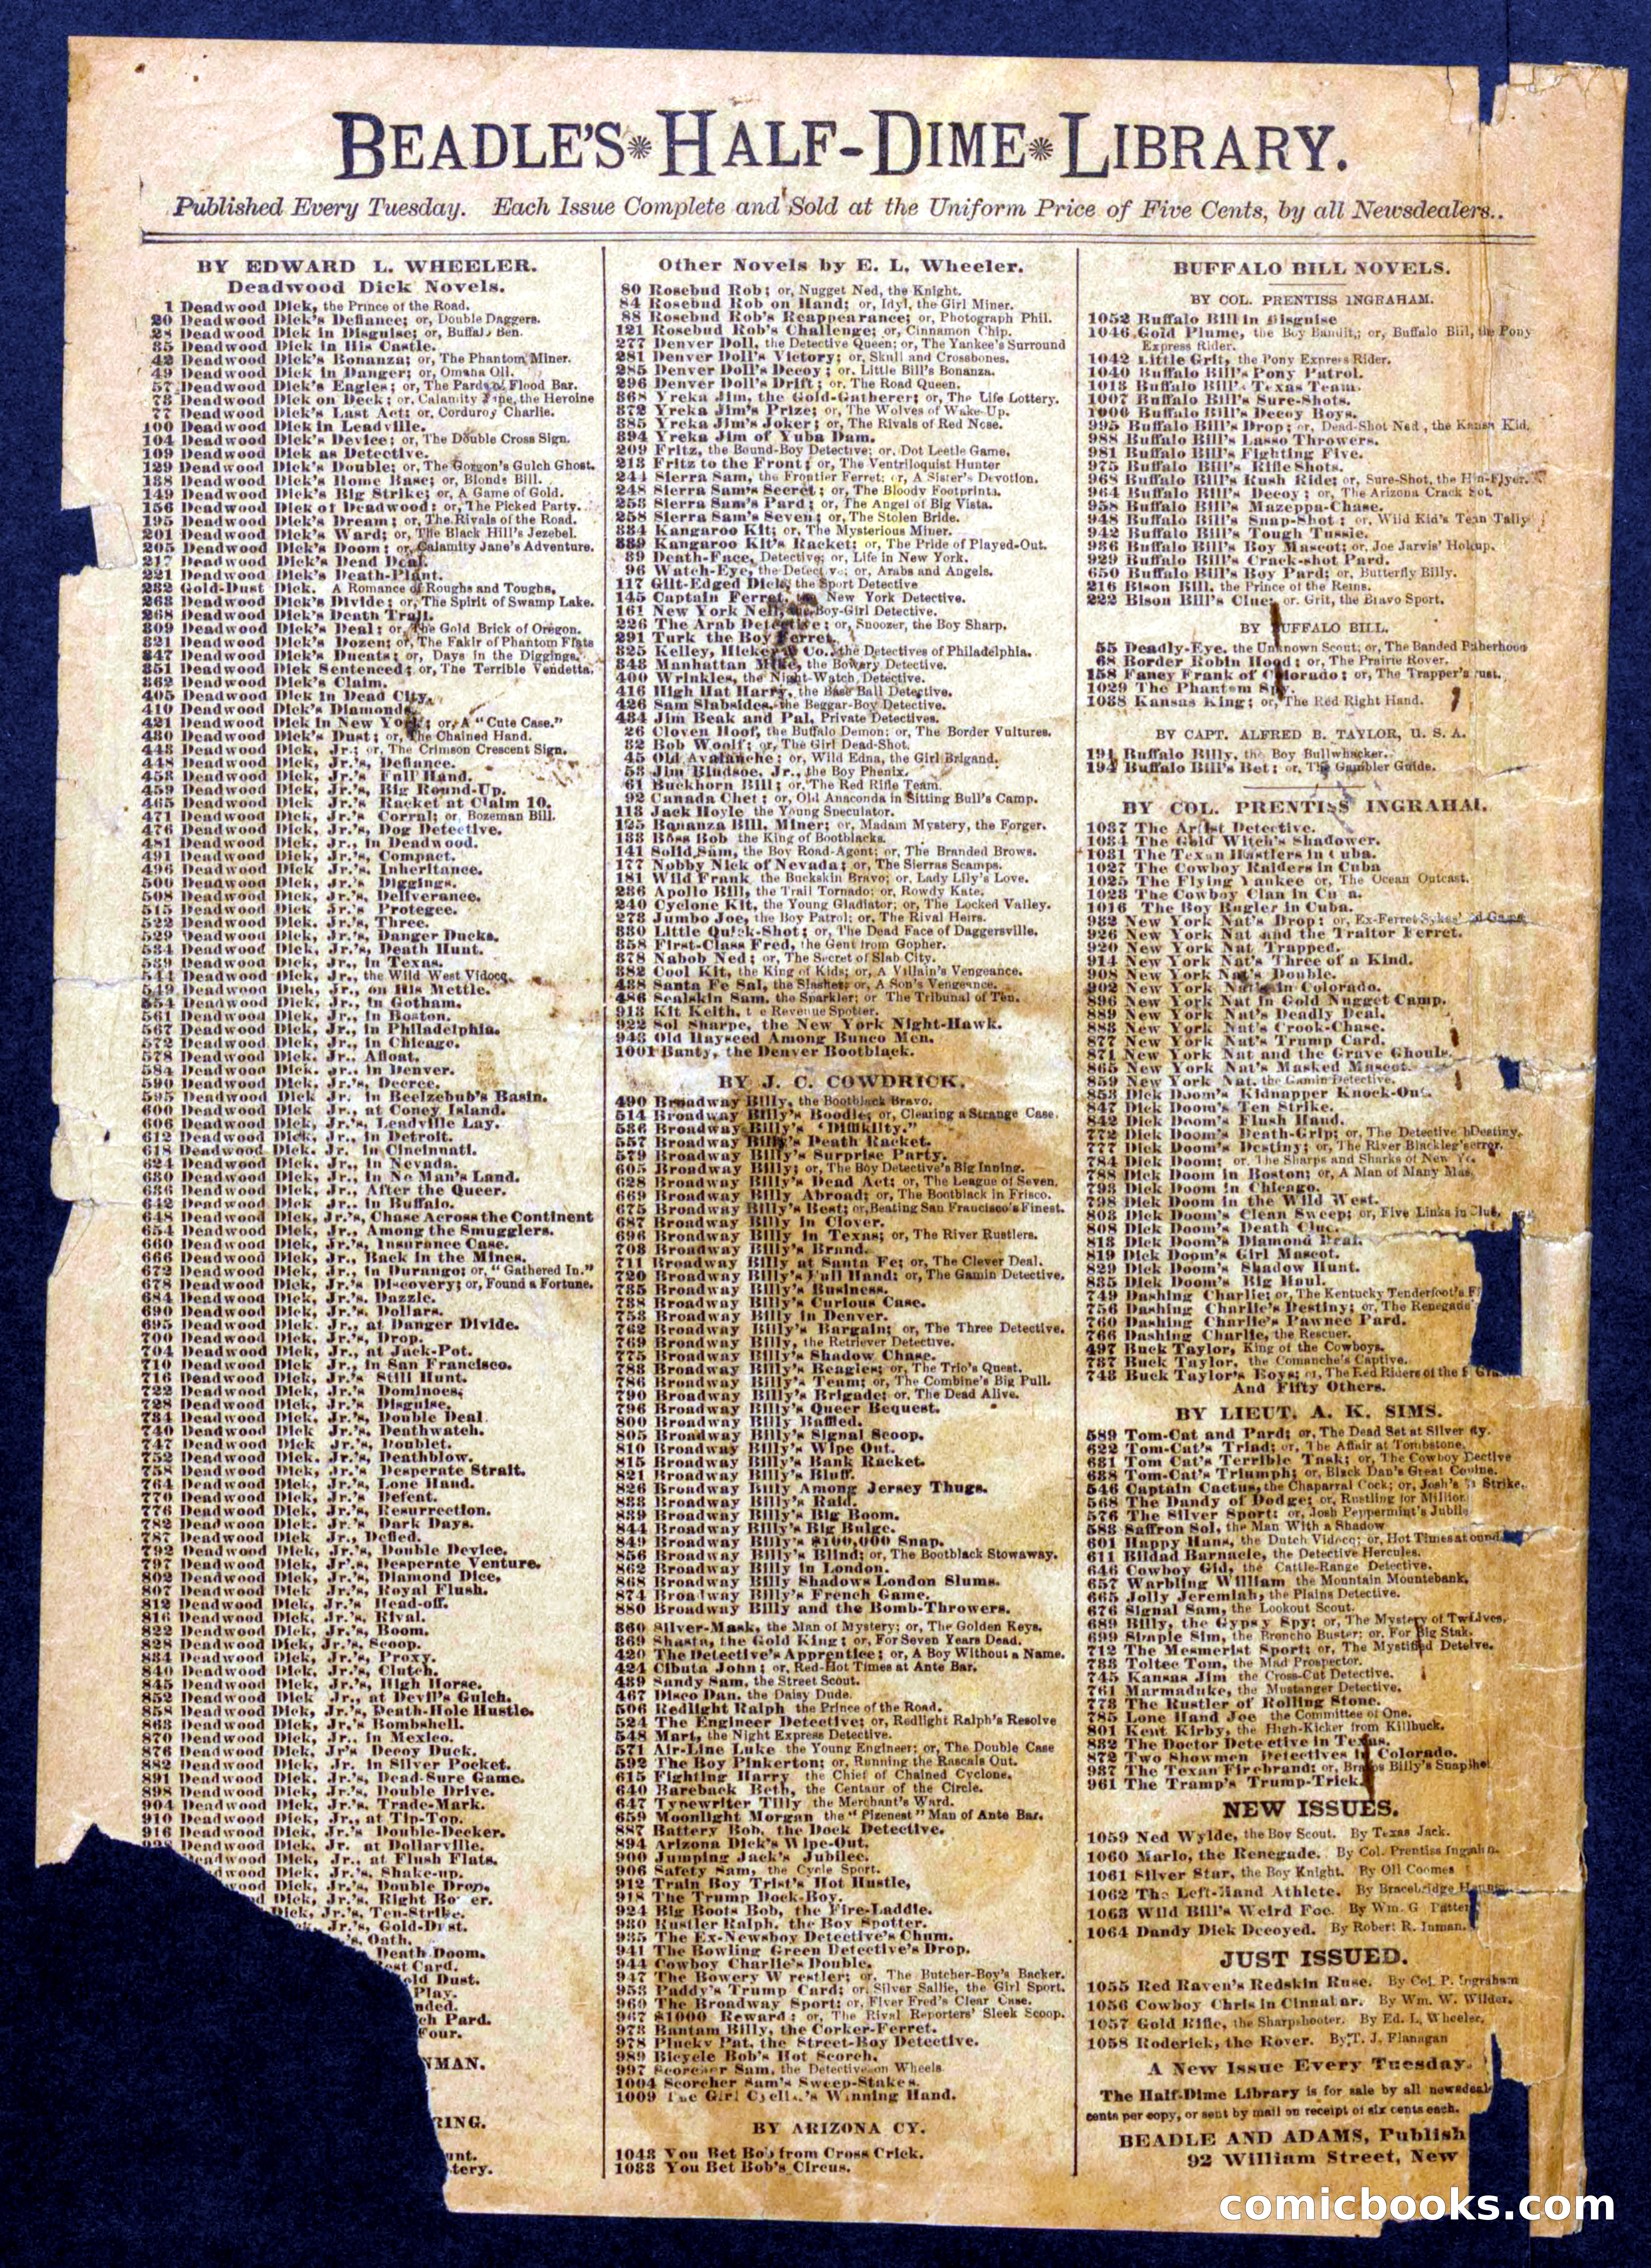 BEADLE'S HALF-DIME LIBRARY.
Published Every Tuesday. Each Issue Complete and Sold at the Uniform Price of Five Cents, by all Newsdealers..
BY EDWARD L. WHEELER.
Deadwood Dick Novels.
1 Deadwood Dick, the Prince of the Road.
20 Deadwood Dick's Defiance; or, Double Daggers.
28 Deadwood Dick in Disguise; or, Buffalo Ben.
35 Deadwood Dick in His Castle.
42 Deadwood Dick's Bonanza; or, The Phantom Miner.
49 Deadwood Dick in Danger; or, Omaha Oll.
57 Deadwood Dick's Eagles; or, The Pards of Flood Bar.
73 Deadwood Dick on Deck; or, Calamity Jane, the Heroine
77 Deadwood Dick's Last Act; or, Corduroy Charlie.
100 Deadwood Dick in Leadville.
104 Deadwood Dick's Device; or, The Double Cross Sign.
109 Deadwood Dick as Detective.
129 Deadwood Dick's Double; or, The Gorgon's Gulch Ghost.
138 Deadwood Dick's Home Base; or, Blonde Bill.
149 Deadwood Dick's Big Strike; or, A Game of Gold.
156 Deadwood Dick of Deadwood; or, The Picked Party.
195 Deadwood Dick's Dream; or, The Rivals of the Road.
201 Deadwood Dick's Ward; or, The Black Hill's Jezebel.
205 Deadwood Dick's Doom; or, Calamity Jane's Adventure.
217 Deadwood Dick's Dead Deal.
221 Deadwood Dick's Death-Plant.
232 Gold-Dust Dick. A Romance of Roughs and Toughs,
263 Deadwood Dick's Divide; or, The Spirit of Swamp Lake.
268 Deadwood Dick's Death Trail.
309 Deadwood Dick's Deal; or, The Gold Brick of Oregon.
321 Deadwood Dick's Dozen; or, The Fakir of Phantom Flats
347 Deadwood Dick's Ducats; or, Days in the Diggings.
351 Deadwood Dick Sentenced; or, The Terrible Vendetta.
362 Deadwood Dick's Claim.
405 Deadwood Dick in Dead City.
410 Deadwood Dick's Diamonds.
421 Deadwood Dick in New York; or, A "Cute Case."
430 Deadwood Dick's Dust; or, The Chained Hand.
443 Deadwood Dick, Jr.; or, The Crimson Crescent Sign.
448 Deadwood Dick, Jr.'s, Defiance.
453 Deadwood Dick, Jr.'s Full Hand.
459 Deadwood Dick, Jr.'s, Big Round-Up.
465 Deadwood Dick, Jr.'s Racket at Claim 10.
471 Deadwood Dick, Jr.'s Corral; or Bozeman Bill.
476 Deadwood Dick, Jr.'s, Dog Detective.
481 Deadwood Dick, Jr., in Deadwood.
491 Deadwood Dick, Jr.'s, Compact.
496 Deadwood Dick Jr.'s, Inheritance.
500 Deadwood Dick, Jr.'s, Diggings.
508 Deadwood Dick, Jr.'s, Deliverance.
515 Deadwood Dick Jr.'s, Protegee.
522 Deadwood Dick, Jr.'s, Three.
529 Deadwood Dick, Jr.'s, Danger Ducks.
534 Deadwood Dick, Jr.'s, Death Hunt.
539 Deadwood Dick, Jr., in Texas.
544 Deadwood Dick, Jr., the Wild West Vidocq
549 Deadwood Dick, Jr., on His Mettle.
554 Deadwood Dick, Jr., in Gotham.
561 Deadwood Dick, Jr., in Boston.
567 Deadwood Dick, Jr., in Philadelphia.
572 Deadwood Dick, Jr., in Chicago.
578 Deadwood Dick, Jr., Afloat.
584 Deadwood Dick, Jr., in Denver.
590 Deadwood Dick, Jr.'s, Decree.
595 Deadwood Dick Jr. in Beelzebub's Basin.
600 Deadwood Dick, Jr., at Coney Island.
606 Deadwood Dick, Jr.'s, Leadville Lay.
612 Deadwood Dick, Jr., in Detroit.
618 Deadwood Dick, Jr. in Cincinnati.
624 Deadwood Dick, Jr., in Nevada.
630 Deadwood Dick, Jr., in No Man's Land.
636 Deadwood Dick, Jr., After the Queer.
642 Deadwood Dick, Jr., in Buffalo.
648 Deadwood Dick, Jr.'s, Chase Across the Continent
654 Deadwood Dick, Jr., Among the Smugglers.
660 Deadwood Dick, Jr.'s, Insurance Case.
666 Deadwood Dick, Jr., Back in the Mines.
672 Deadwood Dick, Jr., in Durango; or, "Gathered In."
678 Deadwood Dick, Jr.'s Discovery; or, Found a Fortune.
684 Deadwood Dick, Jr.'s, Dazzle.
690 Deadwood Dick, Jr.'s, Dollars.
695 Deadwood Dick, Jr., at Danger Divide.
700 Deadwood Dick, Jr.'s, Drop.
704 Deadwood Dick, Jr., at Jack-Pot.
710 Deadwood Dick Jr., in San Francisco.
716 Deadwood Dick, Jr.'s Still Hunt.
722 Deadwood Dick, Jr.'s Dominoes.
728 Deadwood Dick, Jr.'s Disguise.
734 Deadwood Dick, Jr.'s, Double Deal
740 Deadwood Dick Jr.'s, Deathwatch.
747 Deadwood Dick Jr.'s, Doublet.
752 Deadwood Dick, Jr.'s, Deathblow.
758 Deadwood Dick, Jr.'s Desperate Strait.
764 Deadwood Dick, Jr.'s, Lone Hand.
770 Deadwood Dick, Jr.'s, Defeat.
776 Deadwood Dick, Jr.'s, Resurrection.
782 Deadwood Dick, Jr.'s Dark Days.
787 Deadwood Dick Jr., Defied.
792 Deadwood Dick, Jr.'s, Double Device.
797 Deadwood Dick, Jr.'s, Desperate Venture.
802 Deadwood Dick, Jr.'s, Diamond Dice,
807 Deadwood Dick Jr.'s, Royal Flush.
812 Deadwood Dick, Jr.'s Head-off.
816 Deadwood Dick, Jr.'s, Rival.
822 Deadwood Dick, Jr.'s, Boom.
828 Deadwood Dick, Jr.'s, Scoop.
834 Deadwood Dick, Jr.'s, Proxy.
840 Deadwood Dick, Jr.'s, Clutch.
845 Deadwood Dick, Jr.'s, High Horse.
852 Deadwood Dick Jr., at Devil's Gulch.
858 Deadwood Dick, Jr.'s, Death-Hole Hustle.
863 Deadwood Dick, Jr.'s Bombshell.
870 Deadwood Dick, Jr., in Mexico.
876 Deadwood Dick, Jr's Decoy Duck.
882 Deadwood Dick, Jr. in Silver Pocket.
891 Deadwood Dick, Jr.'s, Dead-Sure Game.
898 Deadwood Dick, Jr.'s, Double Drive.
904 Deadwood Dick, Jr.'s, Trade-Mark.
910 Deadwood Dick, Jr., at Tip-Top.
916 Deadwood Dick, Jr.'s Double-Decker.
Deadwood Dick, Jr. at Dollarville.
Dick, Jr., at Flush Flats.
Dick, Jr.'s, Shake-up.
Dick, Jr.'s, Double Drop,
Dick, Jr.'s, Right Bower.
Dick, Jr.'s, Ten-Strike.
Jr.'s, Gold-Dust.
's, Oath.
Death Doom.
Card.
Dust.
Play.
Pard.
Four.
NMAN.
RING.
Other Novels by E. L. Wheeler.
80 Rosebud Rob; or, Nugget Ned, the Knight.
84 Rosebud Rob on Hand; or, Idyl, the Girl Miner.
88 Rosebud Rob's Reappearance; or, Photograph Phil.
121 Rosebud Rob's Challenge; or, Cinnamon Chip.
277 Denver Doll, the Detective Queen; or, The Yankee's Surround
281 Denver Doll's Victory; or, Skull and Crossbones.
285 Denver Doll's Decoy; or, Little Bill's Bonanza.
296 Denver Doll's Drift; or, The Road Queen.
368 Yreka Jim, the Gold-Gatherer; or, The Life Lottery.
372 Yreka Jim's Prize; or, The Wolves of Wake-Up.
385 Yreka Jim's Joker; or, The Rivals of Red Nose.
394 Yreka Jim of Yuba Dam.
209 Fritz, the Bound-Boy Detective; or, Dot Leetle Game.
213 Fritz to the Front; or, The Ventriloquist Hunter
244 Sierra Sam, the Frontier Ferret; or, A Sister's Devotion.
248 Sierra Sam's Secret; or, The Bloody Footprints.
253 Sierra Sam's Pard; or, The Angel of Big Vista.
258 Sierra Sam's Seven; or, The Stolen Bride.
334 Kangaroo Kit; or, The Mysterious Miner.
339 Kangaroo Kit's Racket; or, The Pride of Played-Out.
39 Death-Face, Detective; or, Life in New York.
96 Watch-Eye, the Detective; or, Arabs and Angels.
117 Gilt-Edged Dick, the Sport Detective
145 Captain Ferret, the New York Detective.
161 New York Nell, the Boy-Girl Detective.
226 The Arab Detective; or, Snoozer, the Boy Sharp.
291 Turk the Boy Ferret.
325 Kelley, Hickey & Co., the Detectives of Philadelphia.
343 Manhattan Mike, the Bowery Detective.
400 Wrinkles, the Night-Watch Detective.
416 High Hat Harry, the Base Ball Detective.
426 Sam Slabsides, the Beggar-Boy Detective.
434 Jim Beak and Pal, Private Detectives.
26 Cloven Hoof, the Buffalo Demon; or, The Border Vultures.
32 Bob Woolf; or, The Girl Dead-Shot.
45 Old Avalanche; or, Wild Edna, the Girl Brigand.
53 Jim Bludsoe, Jr., the Boy Phenix.
61 Buckhorn Bill; or, The Red Rifle Team.
92 Canada Chet; or, Old Anaconda in Sitting Bull's Camp.
113 Jack Hoyle the Young Speculator.
125 Bonanza Bill, Miner; or, Madam Mystery, the Forger.
133 Boss Bob the King of Bootblacks.
141 Solid Sam, the Boy Road-Agent; or, The Branded Brows.
177 Nobby Nick of Nevada; or, The Sierras Scamps.
181 Wild Frank, the Buckskin Bravo; or, Lady Lily's Love.
236 Apollo Bill, the Trail Tornado; or, Rowdy Kate.
240 Cyclone Kit, the Young Gladiator; or, The Locked Valley.
273 Jumbo Joe, the Boy Patrol; or, The Rival Heirs.
330 Little Quick-Shot; or, The Dead Face of Daggersville.
358 First-Class Fred, the Gent from Gopher.
378 Nabob Ned; or, The Secret of Slab City.
382 Cool Kit, the King of Kids; or, A Villain's Vengeance.
438 Santa Fe Sal, the Slasher; or, A Son's Vengeance.
486 Sealskin Sam, the Sparkler; or The Tribunal of Ten.
913 Kit Keith, the Revenue Spotter.
922 Sol Sharpe, the New York Night-Hawk.
943 Old Hayseed Among Bunco Men.
1001 Banty, the Denver Bootblack.
BY J. C. COWDRICK.
490 Broadway Billy, the Bootblack Bravo.
514 Broadway Billy's Boodle; or, Clearing a Strange Case.
536 Broadway Billy's 'Difikilty."
557 Broadway Billy's Death Racket.
579 Broadway Billy's Surprise Party.
605 Broadway Billy; or, The Boy Detective's Big Inning.
628 Broadway Billy's Dead Act; or, The League of Seven.
669 Broadway Billy Abroad; or, The Bootblack in Frisco.
675 Broadway Billy's Best; or, Beating San Francisco's Finest.
687 Broadway Billy in Clover.
696 Broadway Billy in Texas; or, The River Rustlers.
703 Broadway Billy's Brand.
711 Broadway Billy at Santa Fe; or, The Clever Deal.
720 Broadway Billy's Full Hand; or, The Gamin Detective.
735 Broadway Billy's Business.
738 Broadway Billy's Curious Case.
753 Broadway Billy in Denver.
762 Broadway Billy's Bargain; or, The Three Detective.
769 Broadway Billy, the Retriever Detective.
775 Broadway Billy's Shadow Chase.
783 Broadway Billy's Beagles; or, The Trio's Quest.
786 Broadway Billy's Team; or, The Combine's Big Pull.
790 Broadway Billy's Brigade; or, The Dead Alive.
796 Broadway Billy's Queer Bequest.
800 Broadway Billy Baffled.
805 Broadway Billy's Signal Scoop.
810 Broadway Billy's Wipe Out.
815 Broadway Billy's Bank Racket.
821 Broadway Billy's Bluff.
826 Broadway Billy Among Jersey Thugs.
833 Broadway Billy's Raid.
839 Broadway Billy's Big Boom.
844 Broadway Billy's Big Bulge.
849 Broadway Billy's $100,000 Snap.
856 Broadway Billy's Blind; or, The Bootblack Stowaway.
862 Broadway Billy in London.
868 Broadway Billy Shadows London Slums.
874 Broadway Billy's French Game.
880 Broadway Billy and the Bomb-Throwers.
360 Silver-Mask, the Man of Mystery; or, The Golden Keys.
369 Shasta, the Gold King; or, For Seven Years Dead.
420 The Detective's Apprentice; or, A Boy Without a Name.
424 Cibuta John; or, Red-Hot Times at Ante Bar.
439 Sandy Sam, the Street Scout.
467 Disco Dan, the Daisy Dude.
506 Redlight Ralph the Prince of the Road.
524 The Engineer Detective; or, Redlight Ralph's Resolve
548 Mart, the Night Express Detective.
571 Air-Line Luke the Young Engineer; or, The Double Case
592 The Boy Pinkerton; or, Running the Rascals Out.
615 Fighting Harry the Chief of Chained Cyclone.
640 Bareback Beth, the Centaur of the Circle.
647 Typewriter Tilly the Merchant's Ward.
659 Moonlight Morgan the "Pizenest" Man of Ante Bar.
887 Battery Bob, the Dock Detective.
894 Arizona Dick's Wipe-Out.
900 Jumping Jack's Jubilee.
906 Safety Sam, the Cycle Sport.
912 Train Boy Trist's Hot Hustle,
918 The Trump Dock-Boy.
924 Big Boots Bob, the Fire-Laddie.
930 Rustler Ralph, the Boy Spotter.
935 The Ex-Newsboy Detective's Chum.
941 The Bowling Green Detective's Drop.
944 Cowboy Charlie's Double.
947 The Bowery Wrestler; or, The Butcher-Boy's Backer.
953 Paddy's Trump Card; or, Silver Sallie, the Girl Sport.
960 The Broadway Sport; or, Flyer Fred's Clear Case.
967 $1000 Reward; or, The Rival Reporters' Sleek Scoop.
973 Bantam Billy, the Corker-Ferret.
978 Plucky Pat, the Street-Boy Detective.
989 Bicycle Bob's Hot Scorch.
997 Scorcher Sam, the Detective on Wheels
1004 Scorcher Sam's Sweep-Stakes.
1009 The Girl Cyclist's Winning Hand.
BY ARIZONA CY.
1043 You Bet Bob from Cross Crick.
1033 You Bet Bob's Circus.
BUFFALO BILL NOVELS.
BY COL. PRENTISS INGRAHAM.
1052 Buffalo Bill in Disguise
1046 Gold Plume, the Boy Bandit; or, Buffalo Bill, the Pony
Express Rider.
1042 Little Grit, the Pony Express Rider.
1040 Buffalo Bill's Pony Patrol.
1013 Buffalo Bill's Texas Team.
1007 Buffalo Bill's Sure-Shots.
1000 Buffalo Bill's Decoy Boys.
995 Buffalo Bill's Drop; or, Dead-Shot Ned, the Kansas Kid.
988 Buffalo Bill's Lasso Throwers.
981 Buffalo Bill's Fighting Five.
975 Buffalo Bill's Rifle Shots.
968 Buffalo Bill's Rush Ride; or, Sure-Shot, the High-Flyer.
964 Buffalo Bill's Decoy; or, The Arizona Crack Shot.
958 Buffalo Bill's Mazeppa-Chase.
948 Buffalo Bill's Snap-Shot; or, Wild Kid's Texan Tally
942 Buffalo Bill's Tough Tussle.
936 Buffalo Bill's Boy Mascot; or, Joe Jarvis' Hold-up.
929 Buffalo Bill's Crack-shot Pard.
650 Buffalo Bill's Boy Pard; or, Butterfly Billy.
216 Bison Bill, the Prince of the Reins.
222 Bison Bill's Clue; or, Grit, the Bravo Sport.
BY BUFFALO BILL.
55 Deadly-Eye, the Unknown Scout; or, The Banded Brotherhood
68 Border Robin Hood; or, The Prairie Rover.
158 Fancy Frank of Colorado; or, The Trapper's Trust.
1029 The Phantom Spy.
1038 Kansas King; or, The Red Right Hand.
BY CAPT. ALFRED B. TAYLOR, U. S. A.
191 Buffalo Billy, the Boy Bullwhacker.
194 Buffalo Bill's Bet; or, The Gambler Guide.
BY COL. PRENTISS INGRAHAM.
1037 The Artist Detective.
1034 The Gold Witch's Shadower.
1031 The Texan Hustlers in Cuba.
1027 The Cowboy Raiders in Cuba
1025 The Flying Yankee or, The Ocean Outcast.
1023 The Cowboy Clan in Cuba.
1016 The Boy Bugler in Cuba.
932 New York Nat's Drop; or, Ex-Ferret Sykes' Game
926 New York Nat and the Traitor Ferret.
920 New York Nat Trapped.
914 New York Nat's Three of a Kind.
908 New York Nat's Double.
902 New York Nat in Colorado.
896 New York Nat in Gold Nugget Camp.
889 New York Nat's Deadly Deal.
883 New York Nat's Crook-Chase.
877 New York Nat's Trump Card.
871 New York Nat and the Grave Ghouls.
865 New York Nat's Masked Mascot.
859 New York Nat, the Gamin Detective.
853 Dick Doom's Kidnapper Knock-Out.
847 Dick Doom's Ten Strike.
842 Dick Doom's Flush Hand.
772 Dick Doom's Death-Grip; or, The Detective by Destiny.
777 Dick Doom's Destiny; or, The River Blackleg's Terror.
784 Dick Doom; or, The Sharps and Sharks of New York.
788 Dick Doom in Boston; or, A Man of Many Masks.
793 Dick Doom in Chicago.
798 Dick Doom in the Wild West.
803 Dick Doom's Clean Sweep; or, Five Links in Clue.
808 Dick Doom's Death Clue.
813 Dick Doom's Diamond Deal.
819 Dick Doom's Girl Mascot.
829 Dick Doom's Shadow Hunt.
835 Dick Doom's Big Haul.
749 Dashing Charlie; or, The Kentucky Tenderfoot's
756 Dashing Charlie's Destiny; or, The Renegade
760 Dashing Charlie's Pawnee Pard.
766 Dashing Charlie, the Rescuer.
497 Buck Taylor, King of the Cowboys.
737 Buck Taylor, the Comanche's Captive.
743 Buck Taylor's Boys; or, The Red Riders of the
And Fifty Others.
BY LIEUT. A. K. SIMS.
589 Tom-Cat and Pard; or, The Dead Set at Silver City.
622 Tom-Cat's Triad; or, The Affair at Tombstone.
631 Tom Cat's Terrible Task; or, The Cowboy Detective
638 Tom-Cat's Triumph; or, Black Dan's Great Combine.
546 Captain Cactus, the Chaparral Cock; or, Josh's Strike.
568 The Dandy of Dodge; or, Rustling for Millions
576 The Silver Sport; or, Josh Peppermint's Jubilee
583 Saffron Sol, the Man With a Shadow
601 Happy Hans, the Dutch Vidocq; or, Hot Times at
611 Bildad Barnacle, the Detective Hercules.
646 Cowboy Gid, the Cattle-Range Detective.
657 Warbling William the Mountain Mountebank.
665 Jolly Jeremiah, the Plains Detective.
676 Signal Sam, the Lookout Scout.
689 Billy, the Gypsy Spy; or, The Mystery of Two Lives.
699 Simple Sim, the Broncho Buster; or, For Big Stakes.
712 The Mesmerist Sport; or, The Mystified Detective.
733 Toltec Tom, the Mad Prospector.
745 Kansas Jim the Cross-Cut Detective.
761 Marmaduke, the Mustanger Detective.
773 The Rustler of Rolling Stone.
785 Lone Hand Joe the Committee of One.
801 Kent Kirby, the High-Kicker from Killbuck.
832 The Doctor Detective in Texas.
872 Two Showmen Detectives in Colorado.
937 The Texan Firebrand; or, Brazos Billy's Snapshot
961 The Tramp's Trump-Trick.
NEW ISSUES.
1059 Ned Wylde, the Boy Scout. By Texas Jack.
1060 Marlo, the Renegade. By Col. Prentiss Ingraham.
1061 Silver Star, the Boy Knight. By Oll Coomes
1062 The Left-Hand Athlete. By Bracebridge
1063 Wild Bill's Weird Foe. By Wm. G. Patten
1064 Dandy Dick Decoyed. By Robert R. Inman.
JUST ISSUED.
1055 Red Raven's Redskin Ruse. By Col. P. Ingraham
1056 Cowboy Chris in Cinnabar. By Wm. W. Wilder.
1057 Gold Rifle, the Sharpshooter. By Ed. L. Wheeler.
1058 Roderick, the Rover. By T. J. Flanagan
A New Issue Every Tuesday.
The Half-Dime Library is for sale by all newsdeal
cents per copy, or sent by mail on receipt of six cents each.
BEADLE AND ADAMS, Publish
92 William Street, New
comicbooks.com